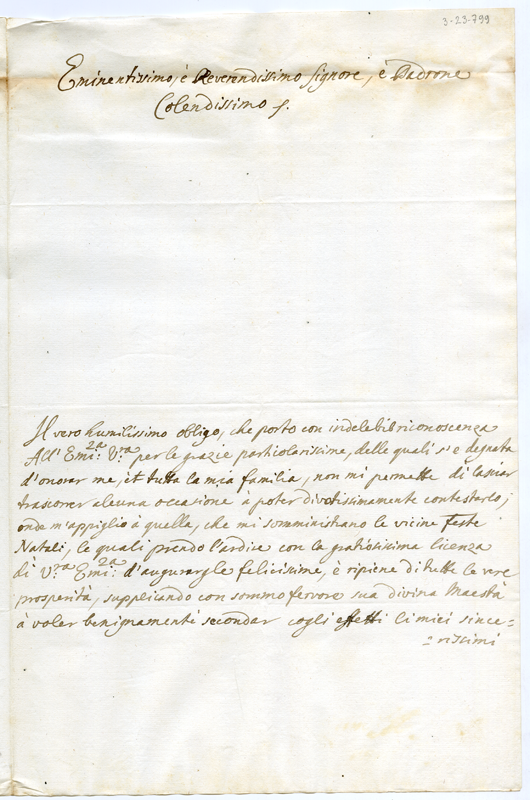 3-23-799
Eminentissimo, è Reverendissimo Signore, è Padrone
Colendissimo
Il vero humilissimo obligo, che porto con indelebil riconoscenza
All' Emi:2a V:ra per le grazie particolarissime, delle quali s'è degnata
d'onorar me, et tutta la mia familia, non mi permette di lasciar
trascorrer alcuna occasione à poter divotissimamente contestarlo;
onde m'appiglio à quella, che mi somministrano le vicine feste
Natali, le quali prendo l'ardire con la gratiosissima licenza
di V:ra Emi:2a d'augurargle felicissime, è ripiene di tutte le vere
prosperità, supplicando con sommo fervore sua divina Maestà
à voler benignamente secondar cogli effetti li miei since=
=rissimi